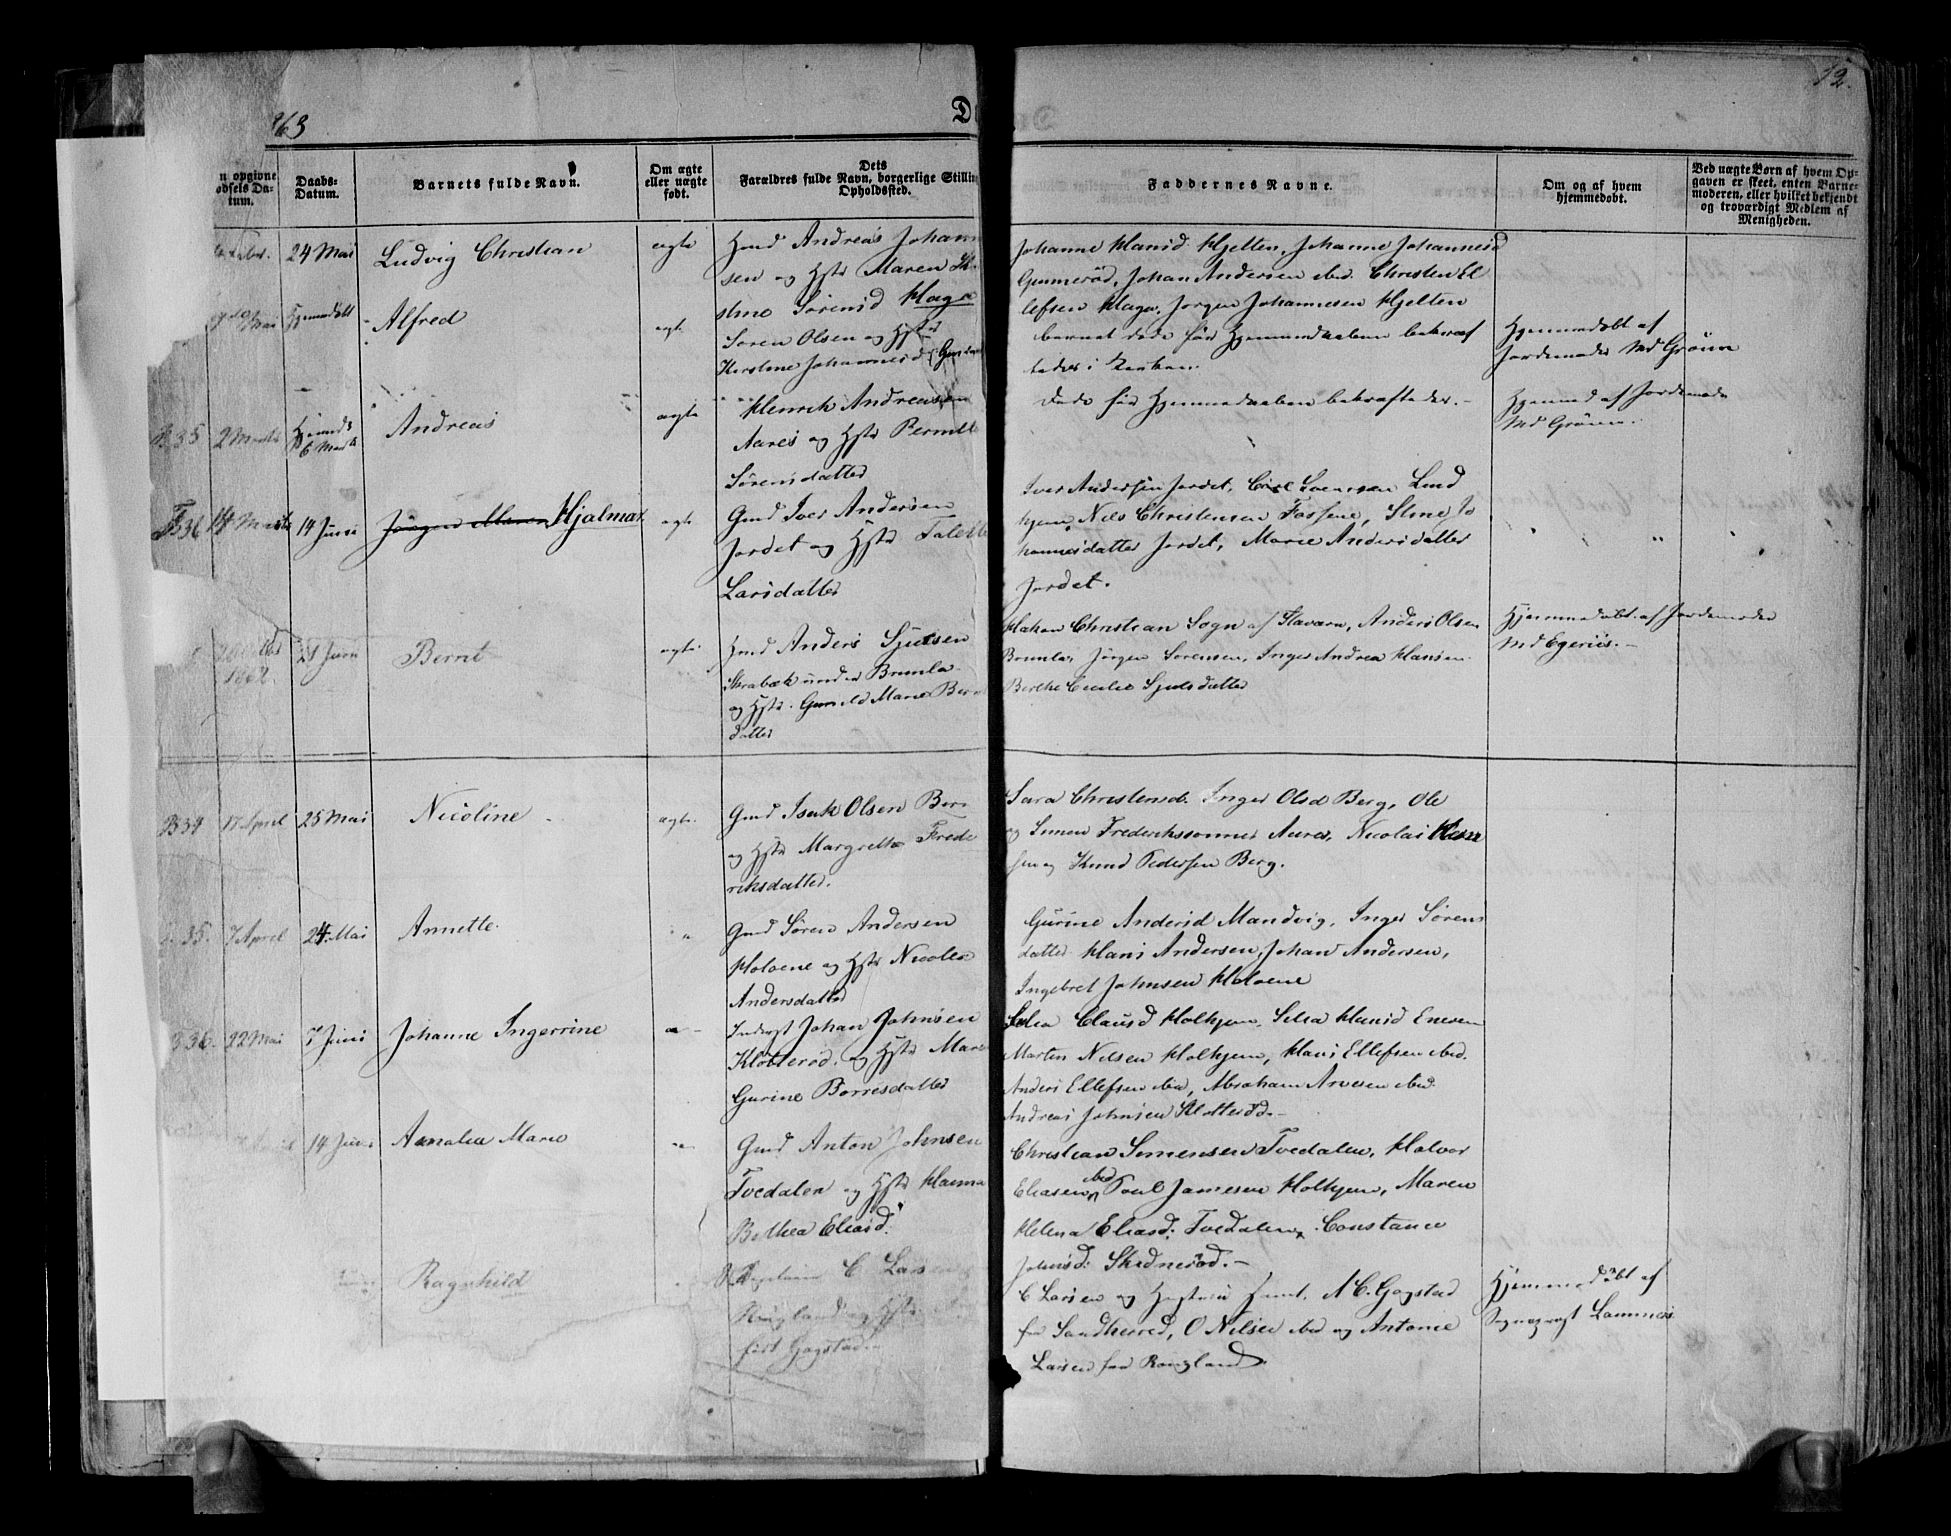 12.
863
n opgivne
ødsels Da-
tum.
Daabs-
Datum.
Barnets fulde Navn.
Om ægte
eller uægte
født.
Dets
Forældres fulde Navn, borgerlige Stilling
Opholdssted.
Faddernes Navne.
Om og af hvem
hjemmedøbt.
Ved uægte Børn af hvem Op-
gaven er skeet, enten Barne-
moderen, eller hvilket bekjendt
og troværdigt Medlem af
Menigheden.
24 Mai
Ludvig Christian
ægte
Hmd Andreas Johann
sen og Hstr Maren
stine Sørensd Haga
Johanne Hansd Hjelten, Johanne Johannesd
Gunnerød, Johan Andersen ibid. Christen El
lefsen Haga, Jørgen Johannesen Hjelten
Mai
Hjemmedøbt
Alfred
ægte
Søren Olsen og Hstr
Kirstine Johannesd
barnet døde før Hjemmedaaben bekræf
tedes i Kirken.
Hjemmedøbt af
Jordemoder Md Grønn
B 35
2 Marts
Hjemmd
6 Marts
Andreas
ægte
Henrik Andreasen
Aarøs og Hstr Bernette
Sørensdatter
Døde før Hjemmedaaben bekræftedes.
Hjemmed af Jordemoder
Md Grønn.
F 36
14 Marts
14 Juni
Jørgen Maren Hjalmar
ægte
Gmd Iver Andersen
Jordet og Hstr Talette
Larsdatter
Iver Andersen Jordet, Carl Svensen Lund
hjem, Nils Christensen Fossene, Stine Jo
hannesdatter Jordet, Marie Andersdatter
Jordet.
1862
21 Juni
Bernt
ægte
Hmd Anders Sjulsen
Skrabæk under Brunla
og Hstr. Gunild Marie Bernt
datter
Hakon Christian Sogn af Staværn, Anders Olsen
Brunla, Jørgen Sørensen, Inger Andrea Hansen
Berthe Cecilie Sjulsdatter
Hjemmedøbt af Jordemoder
Md Egeriis.
B 34
17 April
25 Mai
Nicoline
ægte
Gmd Isak Olsen Berg
og Hstr Margrethe Frede
riksdatter.
Sara Christensd. Inger Olsd Berg, Ole
og Simen Frederikssønner Aarøs, Nicolai Han
sen og Knud Pedersen Berg.
35.
7 April
24 Mai
Annette
Gmd Søren Andersen
Holvene og Hstr Nicolea
Andersdatter
Gurine Andersd Mandvig, Inger Sørens
datter Hans Andersen, Johan Andersen,
Ingebret Johnsen Holvene
36.
22 Mai
7 Juni
Johanne Ingerrine
Inderst Johan Johnsen
Kløtterød og Hstr Maren
Gurine Børresdatter
Silia Clausd Holhjem, Silia Hansd
Martin Nilsen Holhjem, Hans Ellefsen ibid.
Anders Ellefsen ibid, Abraham Arvesen ibid.
Andreas Johnsen Kløtterød.
14 Juni
Amalia Marie
Gmd Anton Johnsen
Tvedalen og Hstr Hanna
Bothea Eliasd.
Christian Simensen Tvedalen, Halvor
Eliasen ibid Poul Jamesen Holhjem, Maren
Helena Eliasd: Tvedalen, Constance
Johnsd: Skidnerød.
Ragnhild
C Larsen
Ringland og Hstr
født Gogstad
C Larsen og Hustru, A C. Gogstad
fra Sandherred, O Nilsen ibid og Antonie
Larsen fra Ringland.
Hjemmedøbt af
Sognepræst Lammers